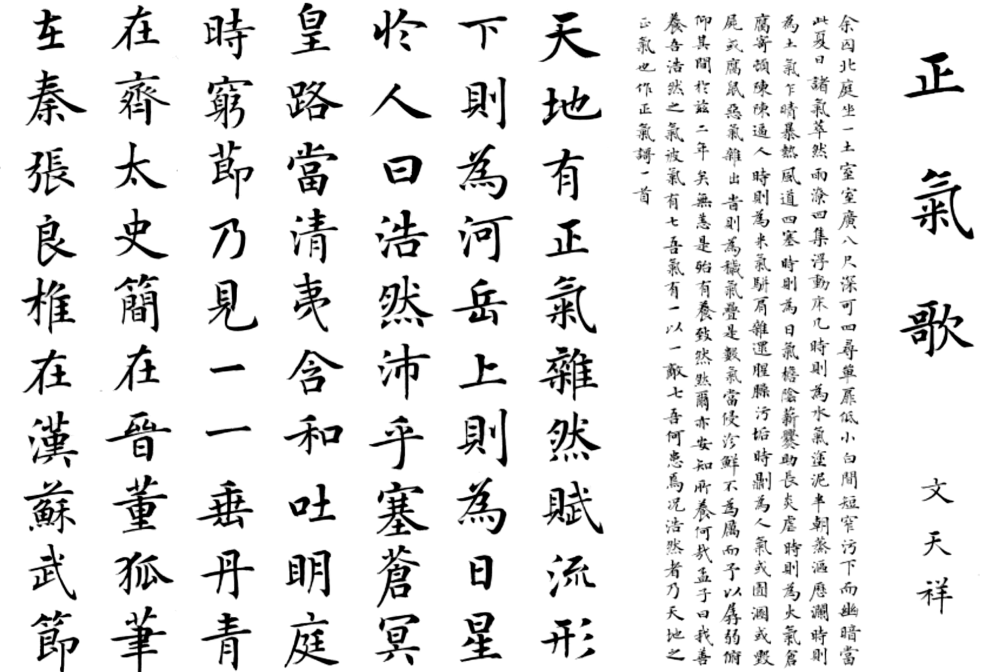 正氣歌
文天祥
余囚北庭坐一土室室廣八尺深可四尋單扉低小白間短窄污下而幽暗當
此夏日諸氣萃然雨潦四集浮動床几時則為水氣塗泥半朝蒸漚歷瀾時則
為土氣乍晴暴熱風道四塞時則為日氣檐陰薪爨助長炎虐時則為火氣倉
腐寄頓陳陳逼人時則為米氣駢肩雜遝腥臊污垢時則為人氣或圊溷或毀
屍或腐鼠惡氣雜出時則為穢氣疊是數氣當侵沴鮮不為厲而予以孱弱俯
仰其間於茲二年矣無恙是殆有養致然然爾亦安知所養何哉孟子曰我善
養吾浩然之氣彼氣有七吾氣有一以一敵七吾何患焉況浩然者乃天地之
正氣也作正氣謌一首
天地有正氣雜然賦流形
下則為河岳上則為日星
於人曰浩然沛乎塞蒼冥
皇路當清夷含和吐明庭
時窮節乃見一一垂丹青
在齊太史簡在晉董狐筆
在秦張良椎在漢蘇武節